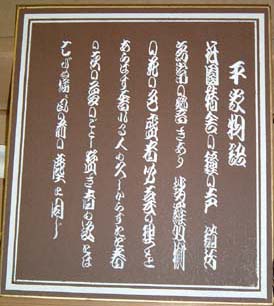 平家物語
祇園精舎の鐘の声 諸行
無常の響きあり 沙羅双樹
の花の色 盛者必衰の理を
あらはす 奢れる人も久しからず ただ春
の夜の夢のごとし 猛き者も遂には
亡びぬ 偏に風の前の塵に同じ